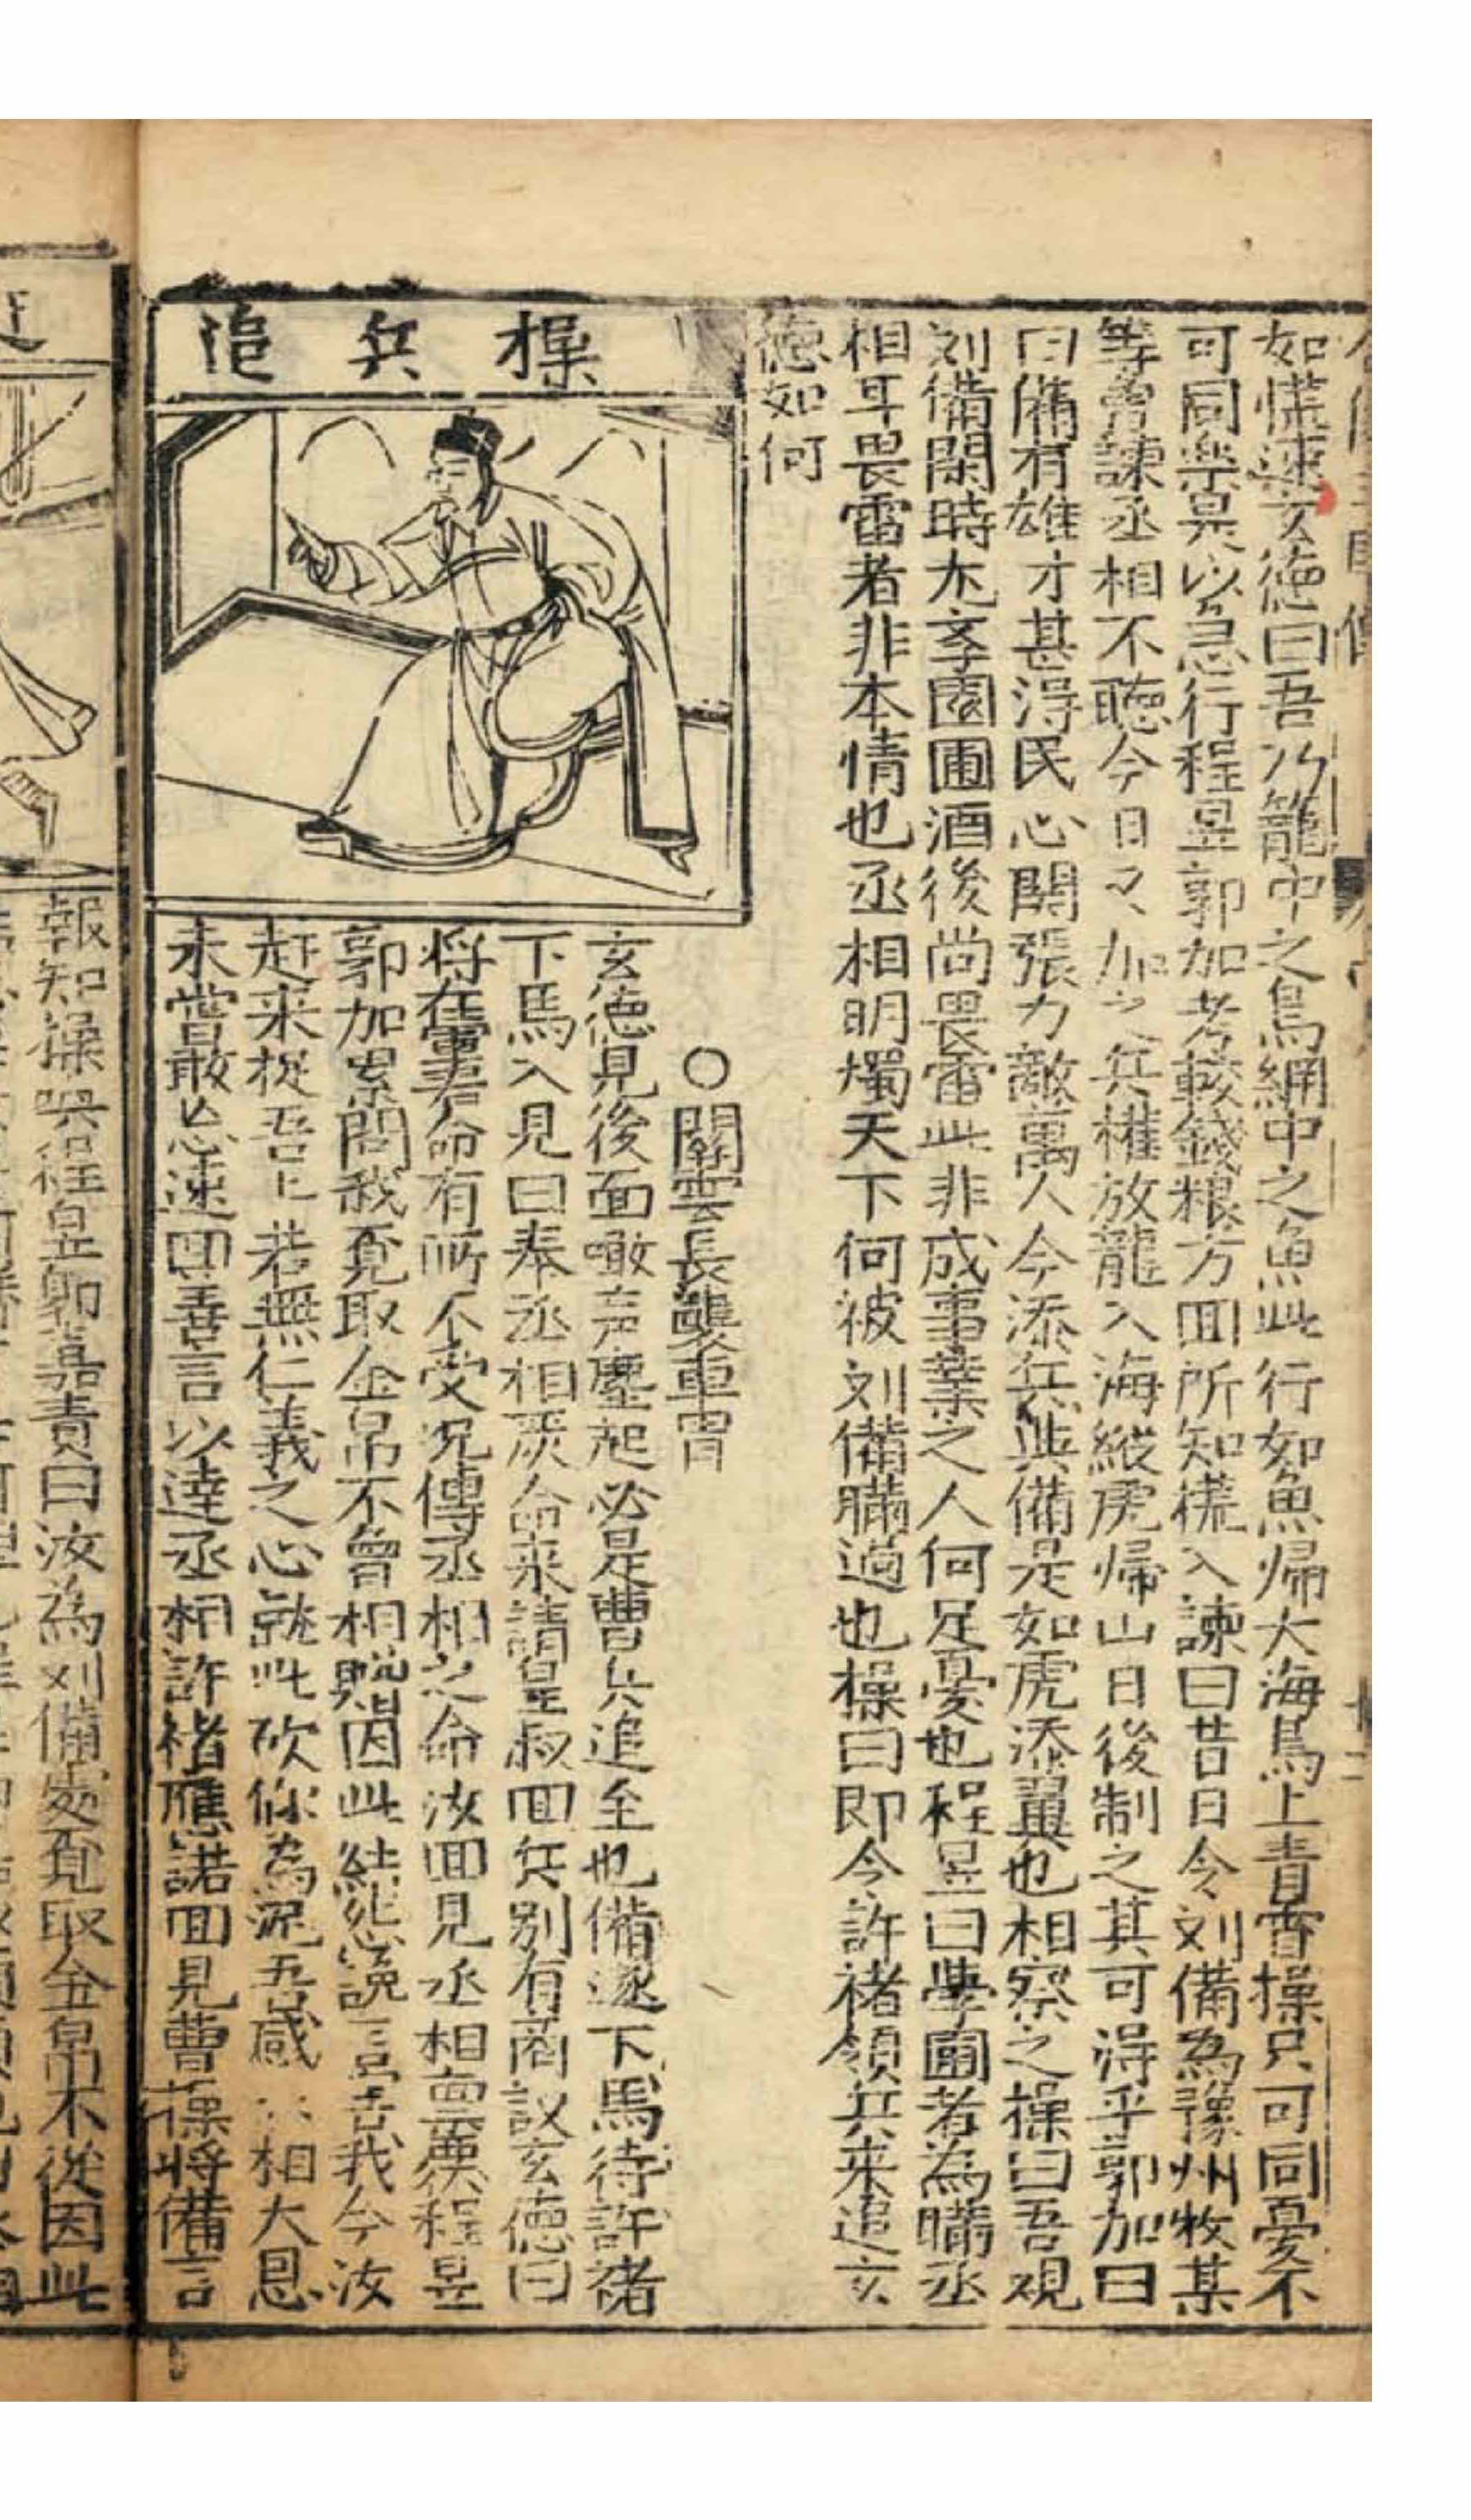 如慌速玄徳曰吾乃籠中之鳥網中之魚此行如魚帰大海鳥上青霄操只可同憂不
可同楽是以急行程昱郭加考較錢粮方囬所知慌入諫曰昔日令刘備為豫州牧某
等曽諫丞相不聴今日又加之兵權放龍入海縱虎帰山日後制之其可淂乎郭加曰
曰備有雄才甚淂民心関張力敵萬人今添兵與備是如虎添翼也相察之操曰吾观
刘備閑時在家園圃酒後尚畏雷此非成事業之人何足憂也程昱曰學圃者為瞞丞
相耳畏雷者非本情也丞相明燭天下何被刘備瞞過也操曰即令許禇領兵来追玄
徳如何
操兵追
○関雲長襲車冑
玄徳見後面喊声塵起必是曹兵追至也備遂下馬待許禇
下馬入見曰奉丞相灰命来請皇叔囬兵別有商议玄徳曰
将在畫君命有所不受况傳丞相之命汝囬見丞相面禀程昱
郭加累問我覔取金帛不曾相賜因此結怨説言吾我今汝
赶来捉吾若無仁義之心就此砍你為泥吾感相大恩
未嘗敢忘速囬善言以達丞相許禇應諾囬見曹操将備言
報知操喚程昱郭嘉責曰汝為刘備處覔取金帛不從因此